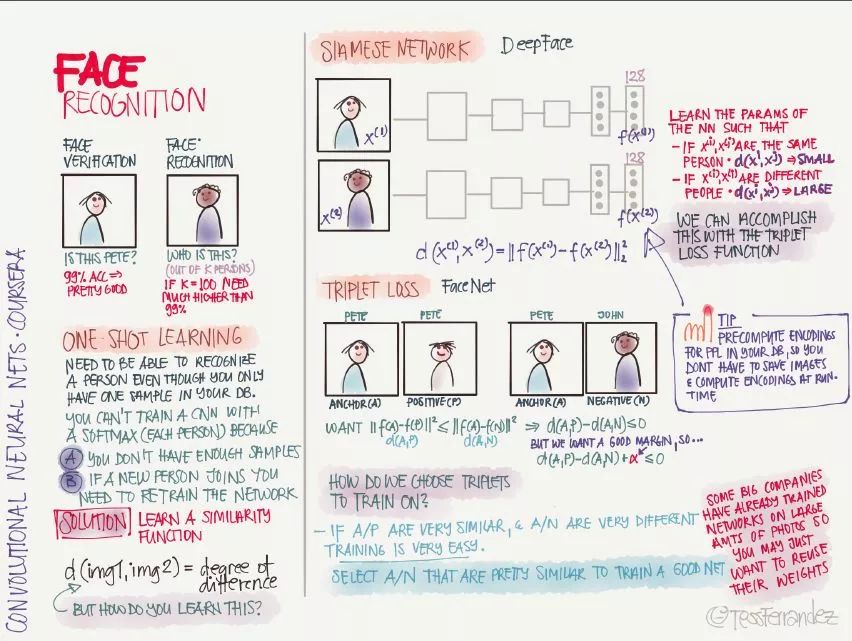 CONVOLUTIONAL NEURAL NETS · COURSERA
FACE
RECOGNITION
FACE
VERIFICATION
IS THIS PETE?
99% ACC ⇒
PRETTY GOOD
FACE
RECOGNITION
WHO IS THIS?
(OUT OF K PERSONS)
IF K=100 NEED
MUCH HIGHER THAN
99%
ONE SHOT LEARNING
NEED TO BE ABLE TO RECOGNIZE
A PERSON EVEN THOUGH YOU ONLY
HAVE ONE SAMPLE IN YOUR DB.
YOU CAN'T TRAIN A CNN WITH
A SOFTMAX (EACH PERSON) BECAUSE
A YOU DON'T HAVE ENOUGH SAMPLES
B IF A NEW PERSON JOINS YOU
NEED TO RETRAIN THE NETWORK
SOLUTION LEARN A SIMILARITY
FUNCTION
d(img1, img2) = degree of
difference
BUT HOW DO YOU LEARN THIS?
SIAMESE NETWORK DeepFace
x⁽¹⁾
128
f(x⁽¹⁾)
x⁽²⁾
128
f(x⁽²⁾)
d(x⁽¹⁾, x⁽²⁾) = ||f(x⁽¹⁾) - f(x⁽²⁾)||₂²
LEARN THE PARAMS OF
THE NN SUCH THAT
- IF x⁽ⁱ⁾, x⁽ʲ⁾ ARE THE SAME
PERSON · d(xⁱ, xʲ) ⇒ SMALL
- IF x⁽ⁱ⁾, x⁽ʲ⁾ ARE DIFFERENT
PEOPLE · d(xⁱ, xʲ) ⇒ LARGE
WE CAN ACCOMPLISH
THIS WITH THE TRIPLET
LOSS FUNCTION
TIP
PRECOMPUTE ENCODINGS
FOR PPL IN YOUR DB, SO YOU
DONT HAVE TO SAVE IMAGES
& COMPUTE ENCODINGS AT RUN-
TIME
TRIPLET LOSS FaceNet
PETE PETE PETE JOHN
ANCHOR(A) POSITIVE(P) ANCHOR(A) NEGATIVE(N)
WANT ||f(A)-f(P)||² ≤ ||f(A)-f(N)||² ⇒ d(A,P)-d(A,N)≤0
d(A,P) d(A,N)
BUT WE WANT A GOOD MARGIN, SO...
d(A,P)-d(A,N)+α ≤0
HOW DO WE CHOOSE TRIPLETS
TO TRAIN ON?
- IF A/P ARE VERY SIMILAR, & A/N ARE VERY DIFFERENT
TRAINING IS VERY EASY.
SELECT A/N THAT ARE PRETTY SIMILAR TO TRAIN A GOOD NET
SOME BIG COMPANIES
HAVE ALREADY TRAINED
NETWORKS ON LARGE
AMTS OF PHOTOS SO
YOU MAY JUST
WANT TO REUSE
THEIR WEIGHTS
@TessFerrandez